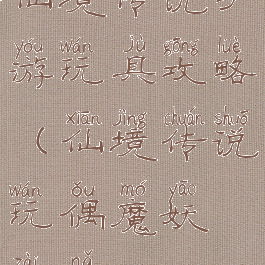 仙境传说
yóu wán jù gōng lüè
游玩具攻略
xiān jìng chuán shuō
（仙境传说
wán ǒu mó yāo
玩偶魔妖
zài nǎ